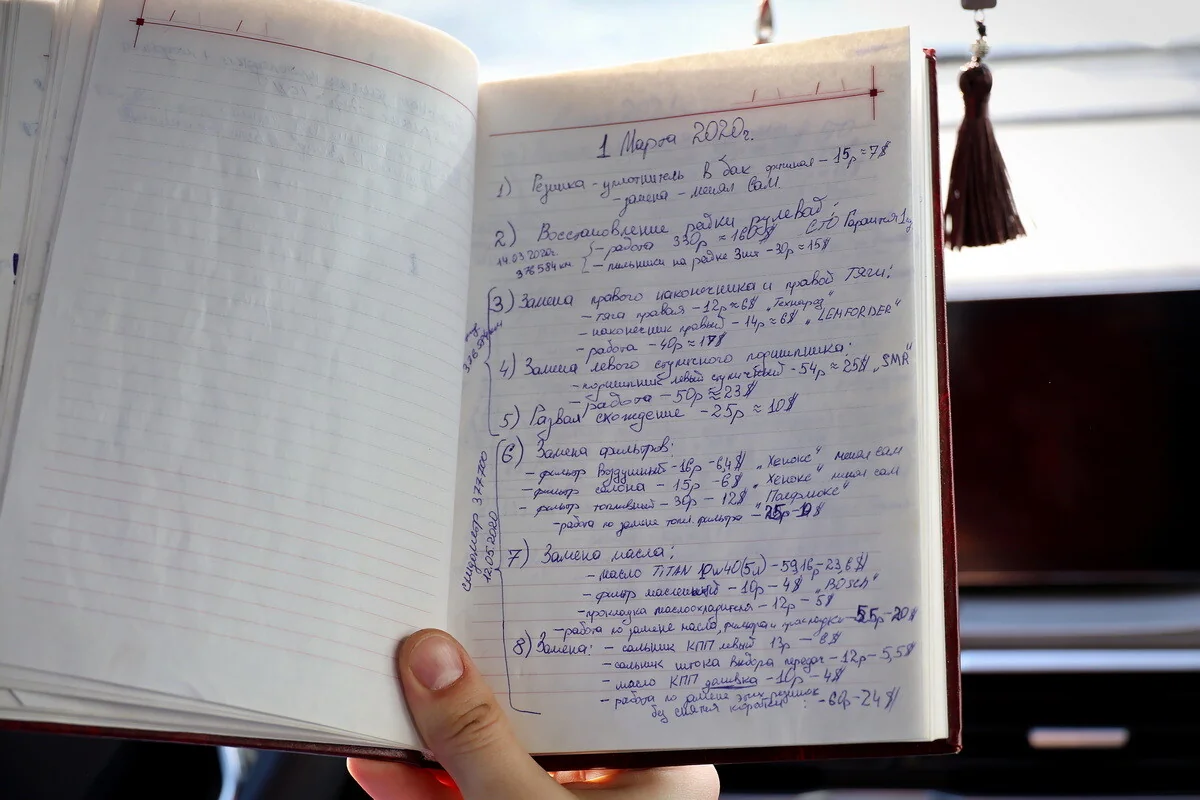 1 Марта 2020г.
1) Резинка - уплотнитель в бак - 15р ≈ 7$
- замена - менял сам
2) Восстановление рейки рулевой:
14.03.2020г. - работа 330р ≈ 160$ СТО Гарантия
376584км - пыльники на рейке 3шт - 30р ≈ 15$
3) Замена правого наконечника и правой тяги:
- тяга правая - 12р ≈ 6$
- наконечник правый - 14р ≈ 6$ „LEMFORDER"
- работа - 40р ≈ 17$
4) Замена левого ступичного подшипника:
- подшипник левый ступичный - 54р ≈ 25$ „SMR"
- работа - 50р ≈ 23$
5) Развал схождение - 25р ≈ 10$
спидометр 377700
12.05.2020
6) Замена фильтров:
- фильтр воздушный - 16р - 6,4$ „Хенокс" менял сам
- фильтр салона - 15р - 6$ „Хенокс" менял сам
- фильтр топливный - 30р - 12$
- работа по замене топл. фильтра - 25р -
7) Замена масла:
- масло TITAN 10w40(5л) - 59,16р - 23,6$
- фильтр масленный - 10р - 4$ „BOSCH"
- прокладка маслоохладителя - 12р - 5$
- работа по замене масла, фильтра и прокладки - 55р - 20$
8) Замена: - сальник КПП левый 13р - 6$
- сальник штока выбора передач - 12р - 5,5$
- масло КПП доливка - 10р - 4$
- работа по замене этих резинок
без снятия коробки: - 60р - 24$